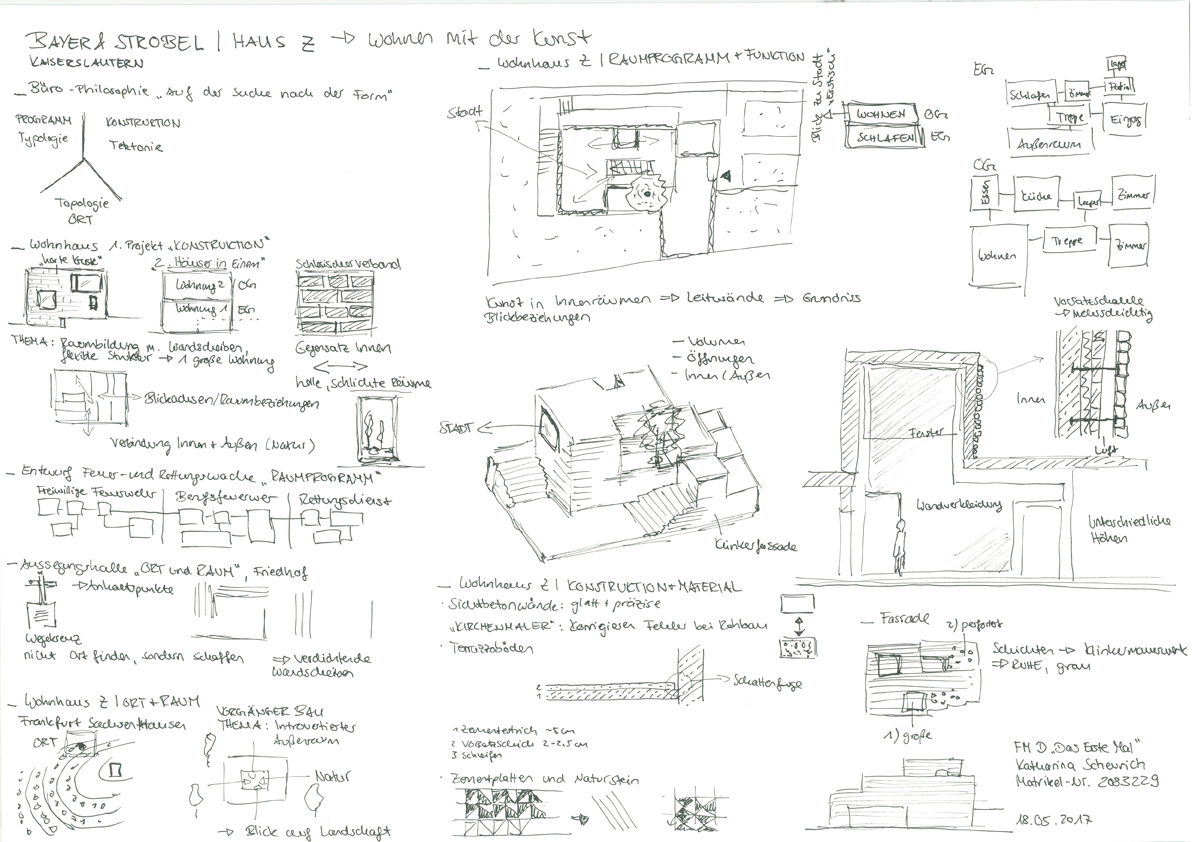 BAYER & STROBEL | HAUS Z → Wohnen mit der Kunst
KAISERSLAUTERN
– Büro-Philosophie „Auf der Suche nach der Form"
PROGRAMM
Typologie
KONSTRUKTION
Tektonik
Topologie
ORT
– Wohnhaus 1. Projekt „KONSTRUKTION"
"2. Häuser in Einem"
Wohnung 2
OG
Wohnung 1
EG
Schlesischer Verband
THEMA: Raumbildung m. Wandscheiben,
flexible Struktur → 1 große Wohnung
Gegensatz Innen
helle, schlichte Räume
Blickachsen/Raumbeziehungen
Verbindung Innen + Außen (Natur)
– Entwurf Feuer- und Rettungswache „RAUMPROGRAMM"
Freiwillige Feuerwehr
Berufsfeuerwehr
Rettungsdienst
– Aussegnungshalle „ORT und RAUM", Friedhof
→ Anhaltpunkte
Wegekreuz
nicht Ort finden, sondern schaffen
⇒ Verdichtende
Wandscheiben
– Wohnhaus Z | ORT + RAUM
Frankfurt
ORT
VORGÄNGER BAU
THEMA: Introvertierter
Außenraum
Natur
→ Blick auf Landschaft
– Wohnhaus Z | RAUMPROGRAMM + FUNKTION
Stadt
Blick zur Stadt
WOHNEN
OG
SCHLAFEN
EG
EG
Lager
Schlafen
Zimmer
Treppe
Eingang
Außenraum
OG
Essen
Küche
Lager
Zimmer
Wohnen
Treppe
Zimmer
Kunst in Innenräumen ⇒ Leitwände ⇒ Grundriss
Blickbeziehungen
– Volumen
– Öffnungen
– Innen/Außen
STADT
Klinkerfassade
Vorsatzschale
→ Mehrschichtig
Innen
Außen
Luft
Fenster
Wandverkleidung
Unterschiedliche
Höhen
– Wohnhaus Z | KONSTRUKTION + MATERIAL
· Sichtbetonwände: glatt + präzise
„KIRCHENMALER": Korrigieren Fehler bei Rohbau
· Terrazzoböden
2
1
Schattenfuge
1 Zementestrich ~5cm
2 Vorsatzschicht 2-2,5cm
3 Schleifen
· Zementplatten und Naturstein
– Fassade
2) perforiert
Schichten → Klinkermauerwerk
⇒ RUHE, grau
1) große
FM D „Das Erste Mal"
Katharina Scheurich
Matrikel-Nr. 2083229
18.05.2017